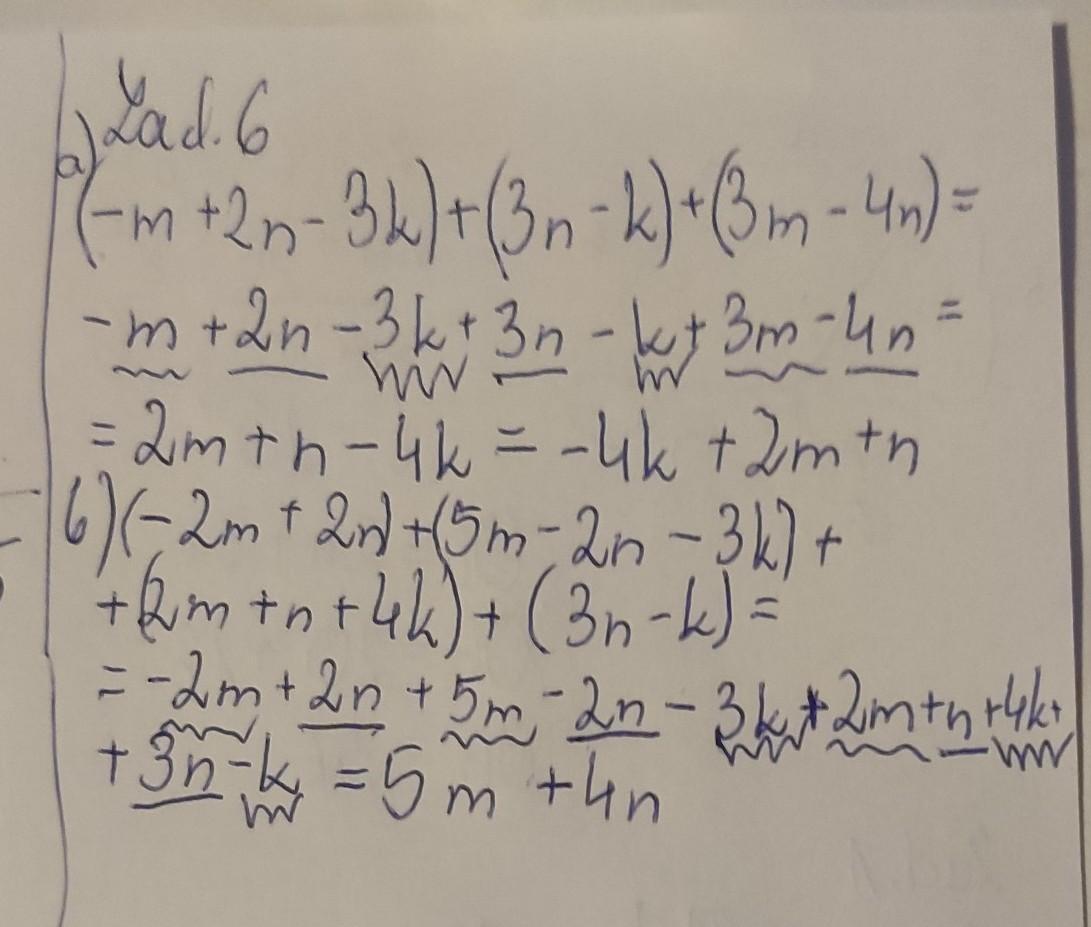 Zad. 6
a)
(-m +2n - 3k)+(3n - k)+(3m - 4n)=
-m +2n -3k+ 3n - k+ 3m - 4n =
= 2m + n - 4k = -4k +2m +n
b)(-2m + 2n)+(5m - 2n - 3k)+
+(2m +n + 4k)+ (3n - k)=
= -2m + 2n + 5m - 2n - 3k+2m+n+4k+
+ 3n - k = 5m +4n